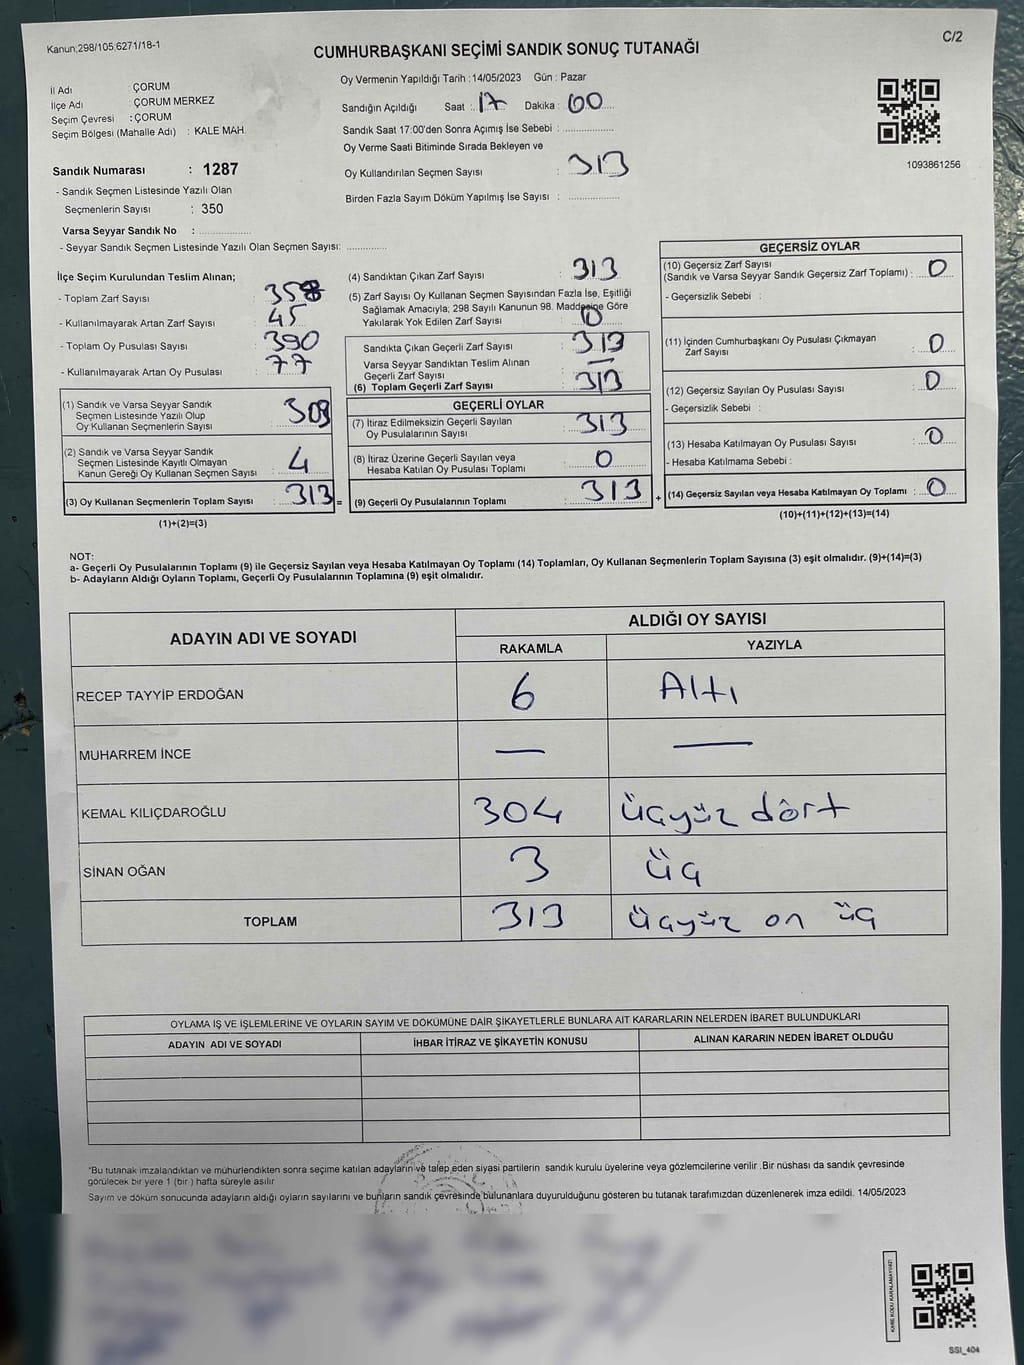 Kanun;298/105;6271/18-1
C/2
CUMHURBAŞKANI SEÇİMİ SANDIK SONUÇ TUTANAĞI
İl Adı : ÇORUM
İlçe Adı : ÇORUM MERKEZ
Seçim Çevresi : ÇORUM
Seçim Bölgesi (Mahalle Adı) : KALE MAH.
Sandık Numarası : 1287
- Sandık Seçmen Listesinde Yazılı Olan
Seçmenlerin Sayısı : 350
Varsa Seyyar Sandık No : ..............
- Seyyar Sandık Seçmen Listesinde Yazılı Olan Seçmen Sayısı: ............
Oy Vermenin Yapıldığı Tarih :14/05/2023 Gün : Pazar
Sandığın Açıldığı Saat : 17 Dakika : 00
Sandık Saat 17:00'den Sonra Açımış İse Sebebi : ................
Oy Verme Saati Bitiminde Sırada Bekleyen ve
Oy Kullandırılan Seçmen Sayısı : 313
Birden Fazla Sayım Döküm Yapılmış İse Sayısı : ................
1093861256
İlçe Seçim Kurulundan Teslim Alınan;
- Toplam Zarf Sayısı : 358
- Kullanılmayarak Artan Zarf Sayısı : 45
- Toplam Oy Pusulası Sayısı : 390
- Kullanılmayarak Artan Oy Pusulası : 77
(1) Sandık ve Varsa Seyyar Sandık
Seçmen Listesinde Yazılı Olup
Oy Kullanan Seçmenlerin Sayısı : 309
(2) Sandık ve Varsa Seyyar Sandık
Seçmen Listesinde Kayıtlı Olmayan
Kanun Gereği Oy Kullanan Seçmen Sayısı : 4
(3) Oy Kullanan Seçmenlerin Toplam Sayısı : 313 =
(1)+(2)=(3)
(4) Sandıktan Çıkan Zarf Sayısı : 313
(5) Zarf Sayısı Oy Kullanan Seçmen Sayısından Fazla İse, Eşitliği
Sağlamak Amacıyla; 298 Sayılı Kanunun 98. Maddesine Göre
Yakılarak Yok Edilen Zarf Sayısı : 0
Sandıkta Çıkan Geçerli Zarf Sayısı : 313
Varsa Seyyar Sandıktan Teslim Alınan
Geçerli Zarf Sayısı : —
(6) Toplam Geçerli Zarf Sayısı : 313
GEÇERLİ OYLAR
(7) İtiraz Edilmeksizin Geçerli Sayılan
Oy Pusulalarının Sayısı : 313
(8) İtiraz Üzerine Geçerli Sayılan veya
Hesaba Katılan Oy Pusulası Toplamı : 0
(9) Geçerli Oy Pusulalarının Toplamı : 313 +
GEÇERSİZ OYLAR
(10) Geçersiz Zarf Sayısı
(Sandık ve Varsa Seyyar Sandık Geçersiz Zarf Toplamı) : 0
- Geçersizlik Sebebi :
(11) İçinden Cumhurbaşkanı Oy Pusulası Çıkmayan
Zarf Sayısı : 0
(12) Geçersiz Sayılan Oy Pusulası Sayısı : 0
- Geçersizlik Sebebi :
(13) Hesaba Katılmayan Oy Pusulası Sayısı : 0
- Hesaba Katılmama Sebebi :
(14) Geçersiz Sayılan veya Hesaba Katılmayan Oy Toplamı : 0
(10)+(11)+(12)+(13)=(14)
NOT:
a- Geçerli Oy Pusulalarının Toplamı (9) ile Geçersiz Sayılan veya Hesaba Katılmayan Oy Toplamı (14) Toplamları, Oy Kullanan Seçmenlerin Toplam Sayısına (3) eşit olmalıdır. (9)+(14)=(3)
b- Adayların Aldığı Oyların Toplamı, Geçerli Oy Pusulalarının Toplamına (9) eşit olmalıdır.
ADAYIN ADI VE SOYADI ALDIĞI OY SAYISI
RAKAMLA YAZIYLA
RECEP TAYYİP ERDOĞAN 6 Altı
MUHARREM İNCE — —
KEMAL KILIÇDAROĞLU 304 üçyüz dört
SİNAN OĞAN 3 üç
TOPLAM 313 üçyüz on üç
OYLAMA İŞ VE İŞLEMLERİNE VE OYLARIN SAYIM VE DÖKÜMÜNE DAİR ŞİKAYETLERLE BUNLARA AİT KARARLARIN NELERDEN İBARET BULUNDUKLARI
ADAYIN ADI VE SOYADI İHBAR İTİRAZ VE ŞİKAYETİN KONUSU ALINAN KARARIN NEDEN İBARET OLDUĞU
*Bu tutanak imzalandıktan ve mühürlendikten sonra seçime katılan adayların ve talep eden siyasi partilerin sandık kurulu üyelerine veya gözlemcilerine verilir .Bir nüshası da sandık çevresinde
görülecek bir yere 1 (bir ) hafta süreyle asılır
Sayım ve döküm sonucunda adayların aldığı oyların sayılarını ve bunların sandık çevresinde bulunanlara duyurulduğunu gösteren bu tutanak tarafımızdan düzenlenerek imza edildi. 14/05/2023
KARE KODU KARALAMAYINIZ!
SSI_404